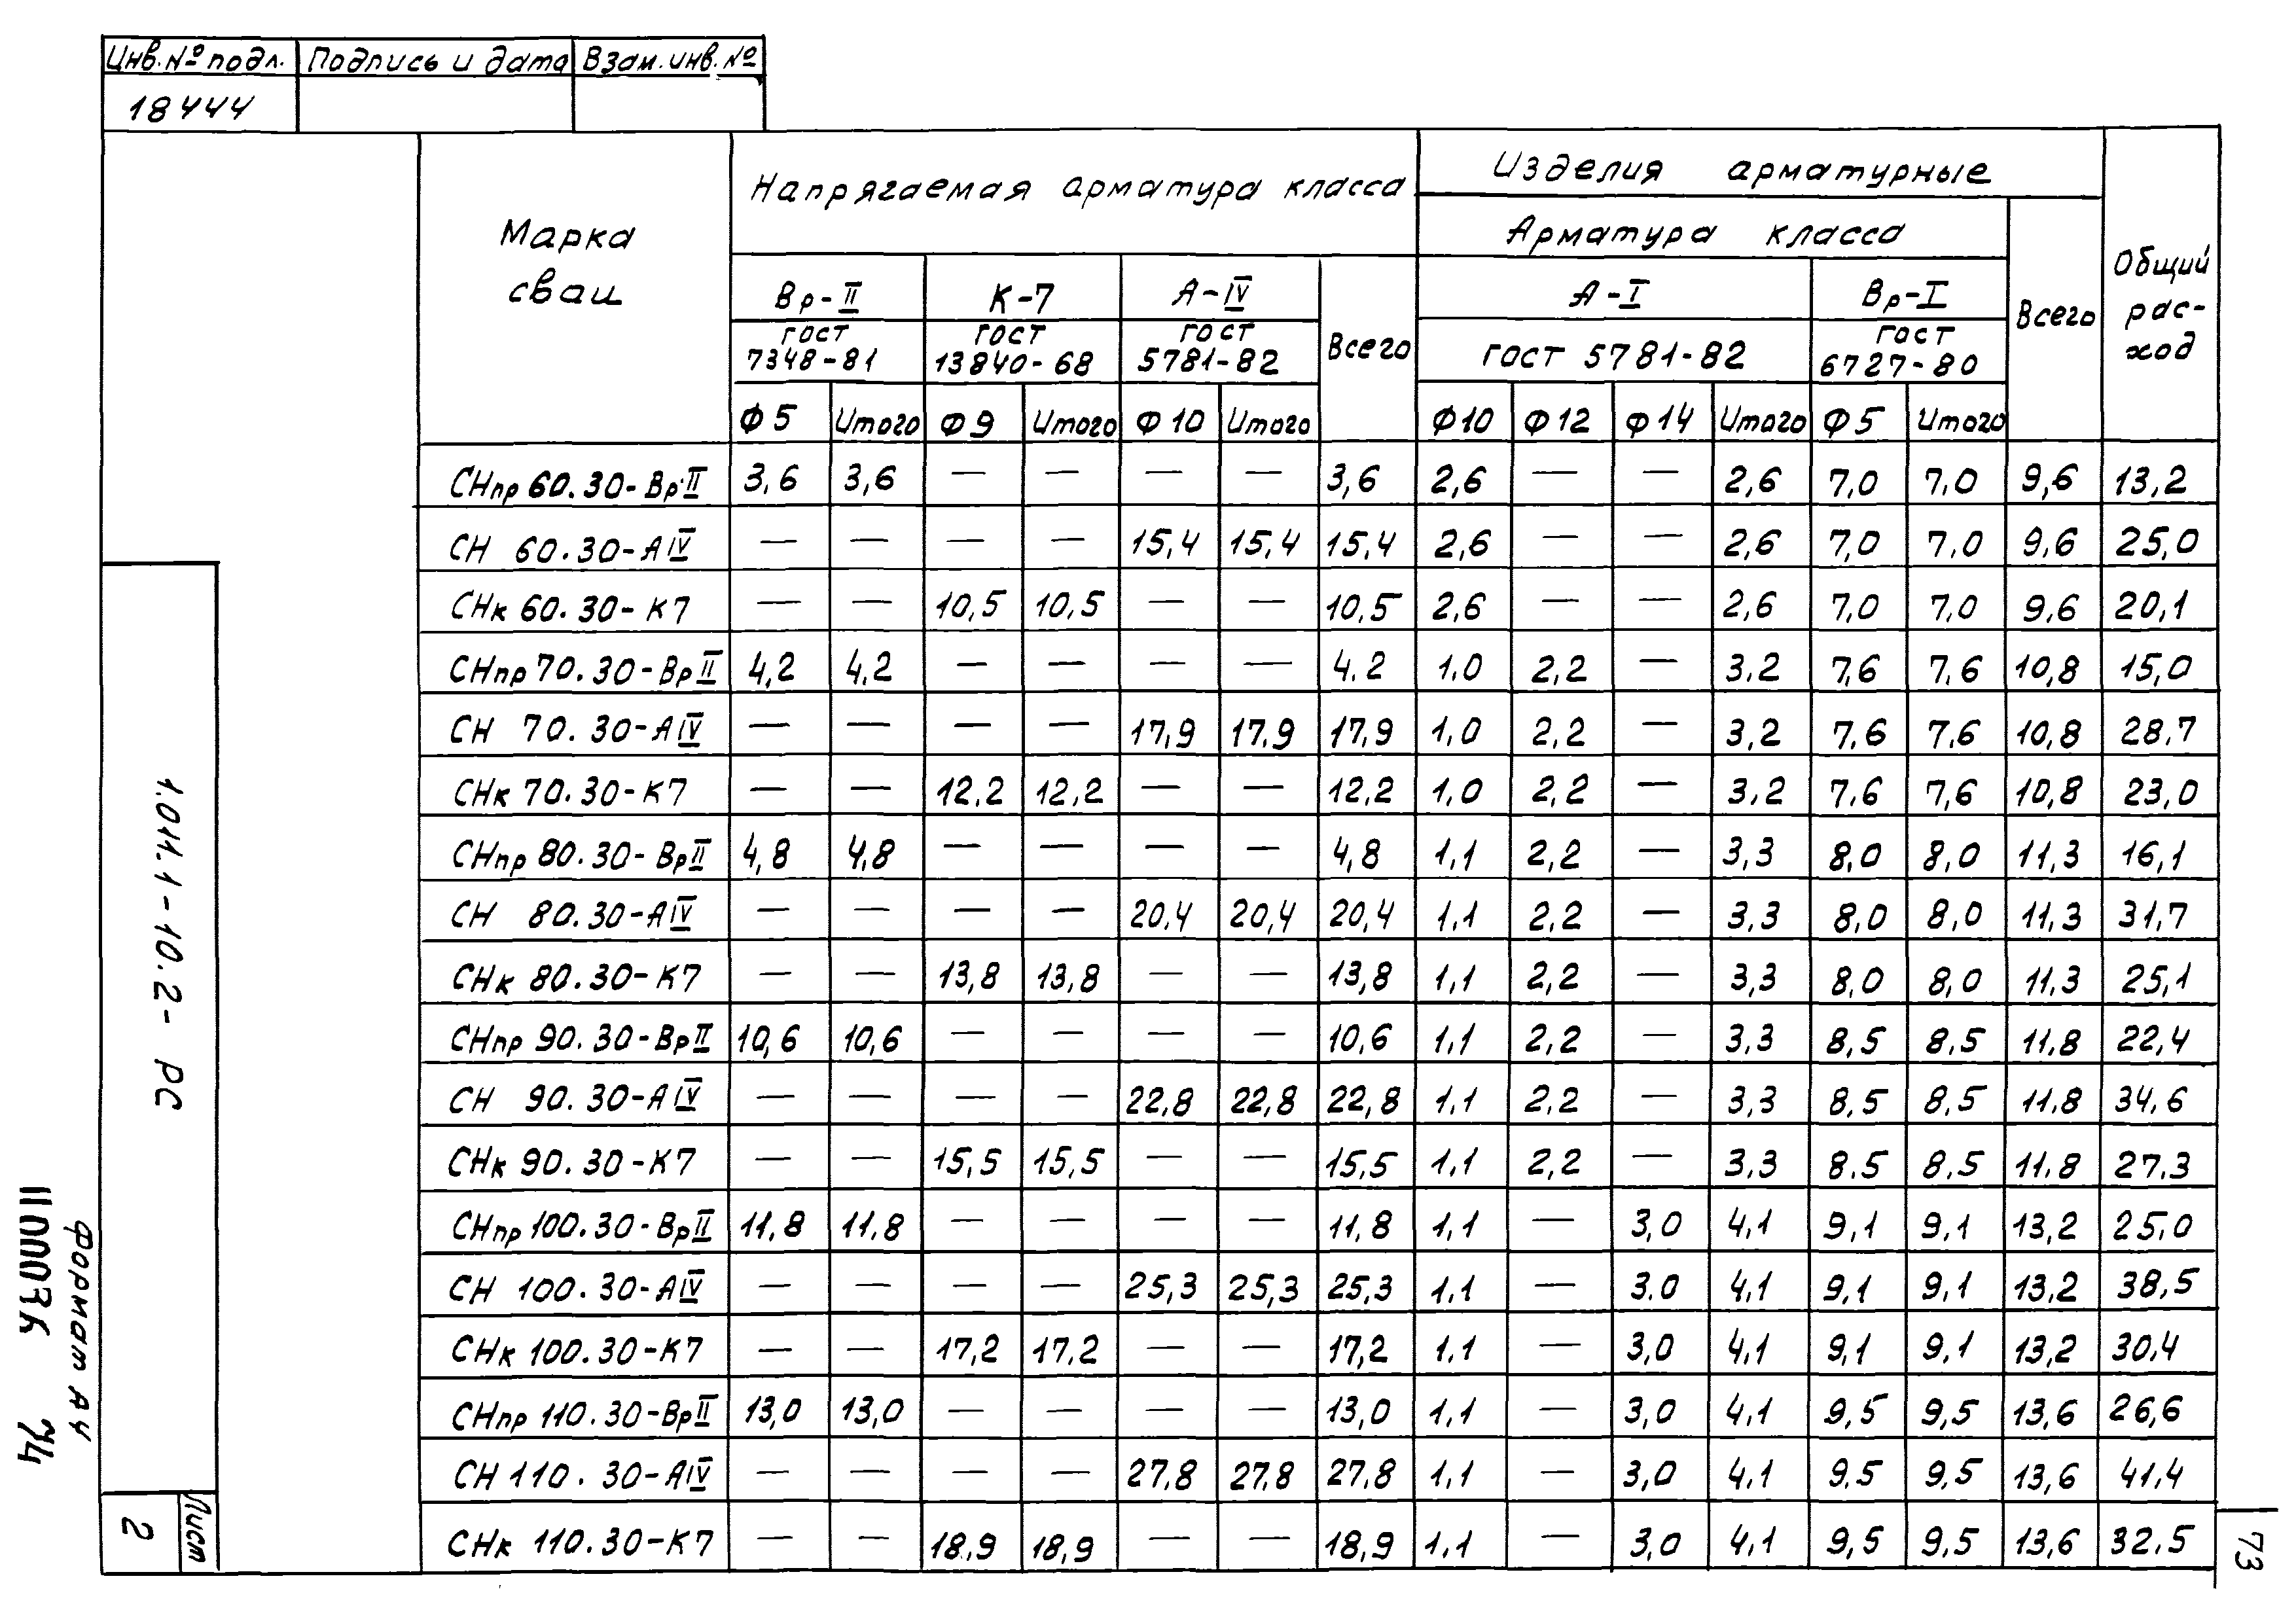 Инв.№ подл. Подпись и дата Взам.инв.№
18444
Марка сваи
Напрягаемая арматура класса
Изделия арматурные
Арматура класса
Вр-II К-7 А-IV Всего А-I Вр-I Всего Общий рас-ход
ГОСТ 7348-81 ГОСТ 13840-68 ГОСТ 5781-82 ГОСТ 5781-82 ГОСТ 6727-80
Ф5 Итого Ф9 Итого Ф10 Итого Ф10 Ф12 Ф14 Итого Ф5 Итого
СНпр 60.30-ВрII 3,6 3,6 — — — — 3,6 2,6 — — 2,6 7,0 7,0 9,6 13,2
СН 60.30-АIV — — — — 15,4 15,4 15,4 2,6 — — 2,6 7,0 7,0 9,6 25,0
СНк 60.30-К7 — — 10,5 10,5 — — 10,5 2,6 — — 2,6 7,0 7,0 9,6 20,1
СНпр 70.30-ВрII 4,2 4,2 — — — — 4.2 1,0 2,2 — 3,2 7,6 7,6 10,8 15,0
СН 70.30-АIV — — — — 17,9 17,9 17,9 1,0 2,2 — 3,2 7,6 7,6 10,8 28,7
СНк 70.30-К7 — — 12,2 12,2 — — 12,2 1,0 2,2 — 3,2 7,6 7,6 10,8 23,0
СНпр 80.30-ВрII 4,8 4,8 — — — — 4,8 1,1 2,2 — 3,3 8,0 8,0 11,3 16,1
СН 80.30-АIV — — — — 20,4 20,4 20,4 1,1 2,2 — 3,3 8,0 8,0 11,3 31,7
СНк 80.30-К7 — — 13,8 13,8 — — 13,8 1,1 2,2 — 3,3 8,0 8,0 11,3 25,1
СНпр 90.30-ВрII 10,6 10,6 — — — — 10,6 1,1 2,2 — 3,3 8,5 8,5 11,8 22,4
СН 90.30-АIV — — — — 22,8 22,8 22,8 1,1 2,2 — 3,3 8,5 8,5 11,8 34,6
СНк 90.30-К7 — — 15,5 15,5 — — 15,5 1,1 2,2 — 3,3 8,5 8,5 11,8 27,3
СНпр 100.30-ВрII 11,8 11,8 — — — — 11,8 1,1 — 3,0 4,1 9,1 9,1 13,2 25,0
СН 100.30-АIV — — — — 25,3 25,3 25,3 1,1 — 3.0 4,1 9,1 9,1 13,2 38,5
СНк 100.30-К7 — — 17,2 17,2 — — 17,2 1,1 — 3,0 4,1 9,1 9,1 13,2 30,4
СНпр 110.30-ВрII 13,0 13,0 — — — — 13,0 1,1 — 3,0 4,1 9,5 9,5 13,6 26,6
СН 110.30-АIV — — — — 27,8 27,8 27,8 1,1 — 3,0 4,1 9,5 9,5 13,6 41,4
СНк 110.30-К7 — — 18,9 18,9 — — 18,9 1,1 — 3,0 4,1 9,5 9,5 13,6 32,5
1.011.1-10.2- РС
Лист
2
формат А4
74
73